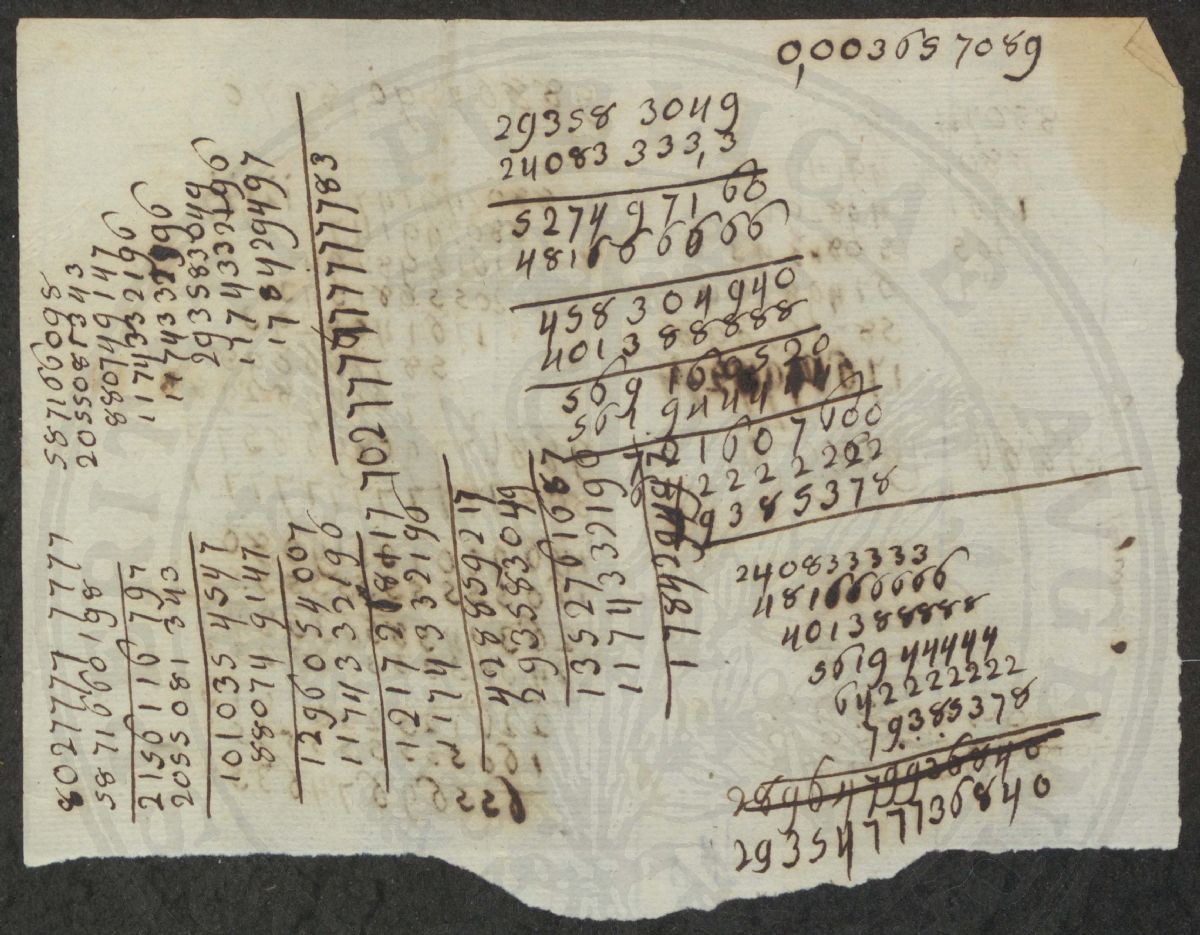 0,003657089
29358 3049
24083 333,3
5274 971 60
4816666666
458304940
401388888
569160520
561 94444
721607600
642222222
79385378
240833333
481666666
40138888
561944444
642222222
79385378
2896479936840
2935477736840
587166098
2055081343
880749147
1174332196
1174332196
293583049
1174332196
178429497
7027777977777783
8027777 7777
587166098
2156116797
2055081343
1010354547
880749147
1296054007
1174332196
1217218117
1174332196
428859217
293583049
1352761687
1174332196
178429497